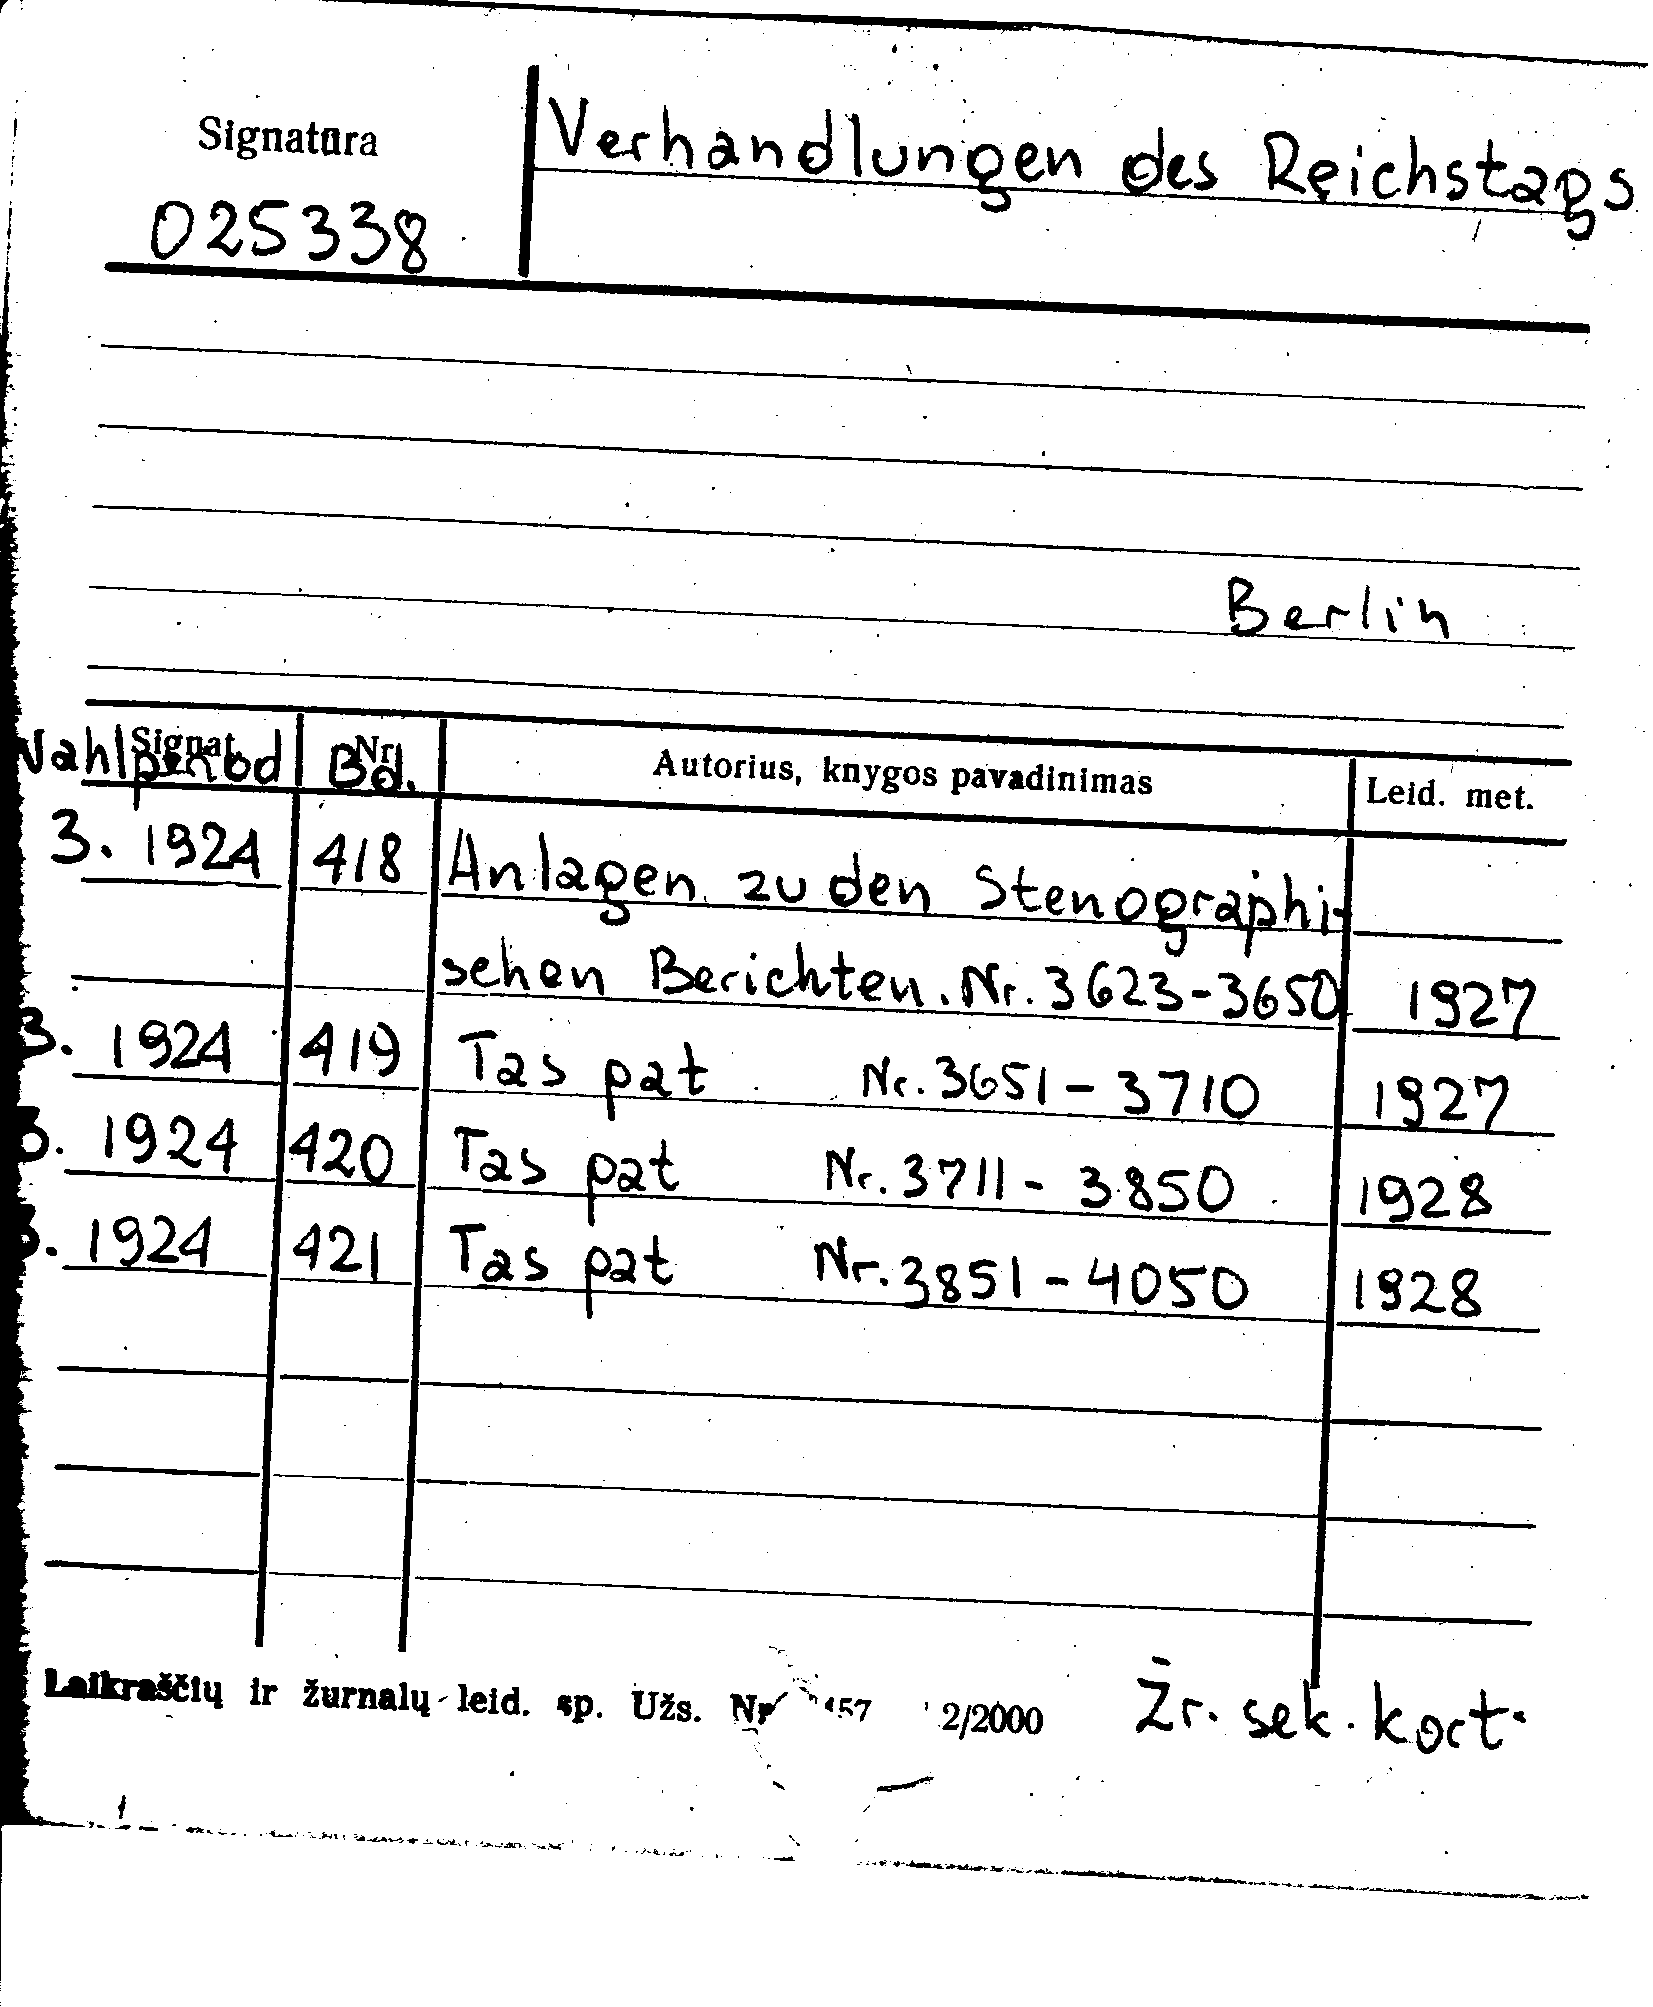 Signatūra
Verhandlungen des Reichstags
025338
Berlin
Signat. Nr. Autorius, knygos pavadinimas Leid. met.
Wahlperiod Bd.
3. 1924 418 Anlagen zu den Stenographi-
schen Berichten. Nr. 3623-3650 1927
3. 1924 419 Tas pat Nr. 3651 - 3710 1927
3. 1924 420 Tas pat Nr. 3711 - 3850 1928
3. 1924 421 Tas pat Nr. 3851 - 4050 1928
Laikraščių ir žurnalų leid. sp. Užs. Nr 2/2000
Žr. sek. kort.